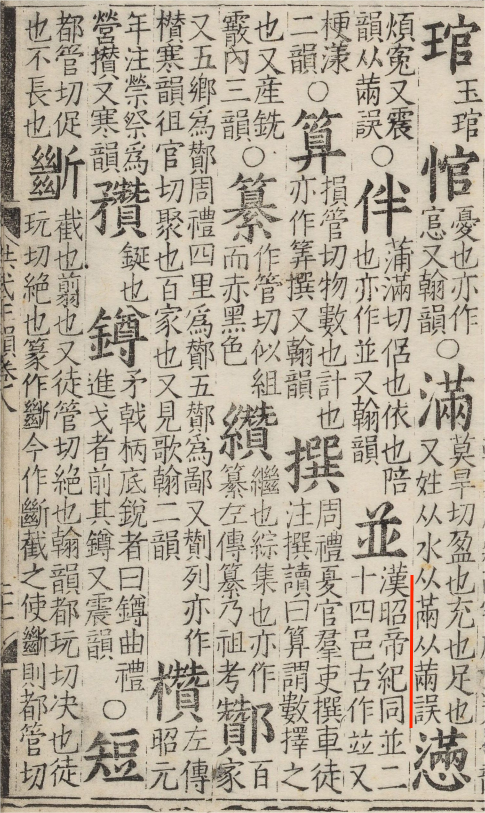 琯玉琯悺憂也亦作
悹又翰韻○滿莫旱切盈也充也足也
又姓从水从㒼从䓣誤懣
煩寃又震
韻从䓣誤○伴蒲滿切侶也依也陪
也亦作並又翰韻並漢昭帝紀同並二
十四邑古作竝又
梗漾
二韻○算損管切物數也計也
亦作筭撰又翰韻撰周禮夏官羣吏撰車徒
注撰讀曰算謂數擇之
也又產銑
霰內三韻○纂作管切似組
而赤黑色纘繼也綜集也亦作
纂左傳纂乃祖考酇百
家
又五鄉爲酇周禮四里爲酇五酇爲鄙又劗列亦作
欑寒韻徂官切聚也百家也又見歌翰二韻欑左傳
昭元
年注禜祭爲
營攢又寒韻穳鋋也鐏矛戟柄底銳者曰鐏曲禮
進戈者前其鐏又震韻○短
都管切促
也不長也斷截也翦也又徒管切絶也翰韻都玩切决也徒
玩切絶也篆作斷今作斷截之使斷則都管切